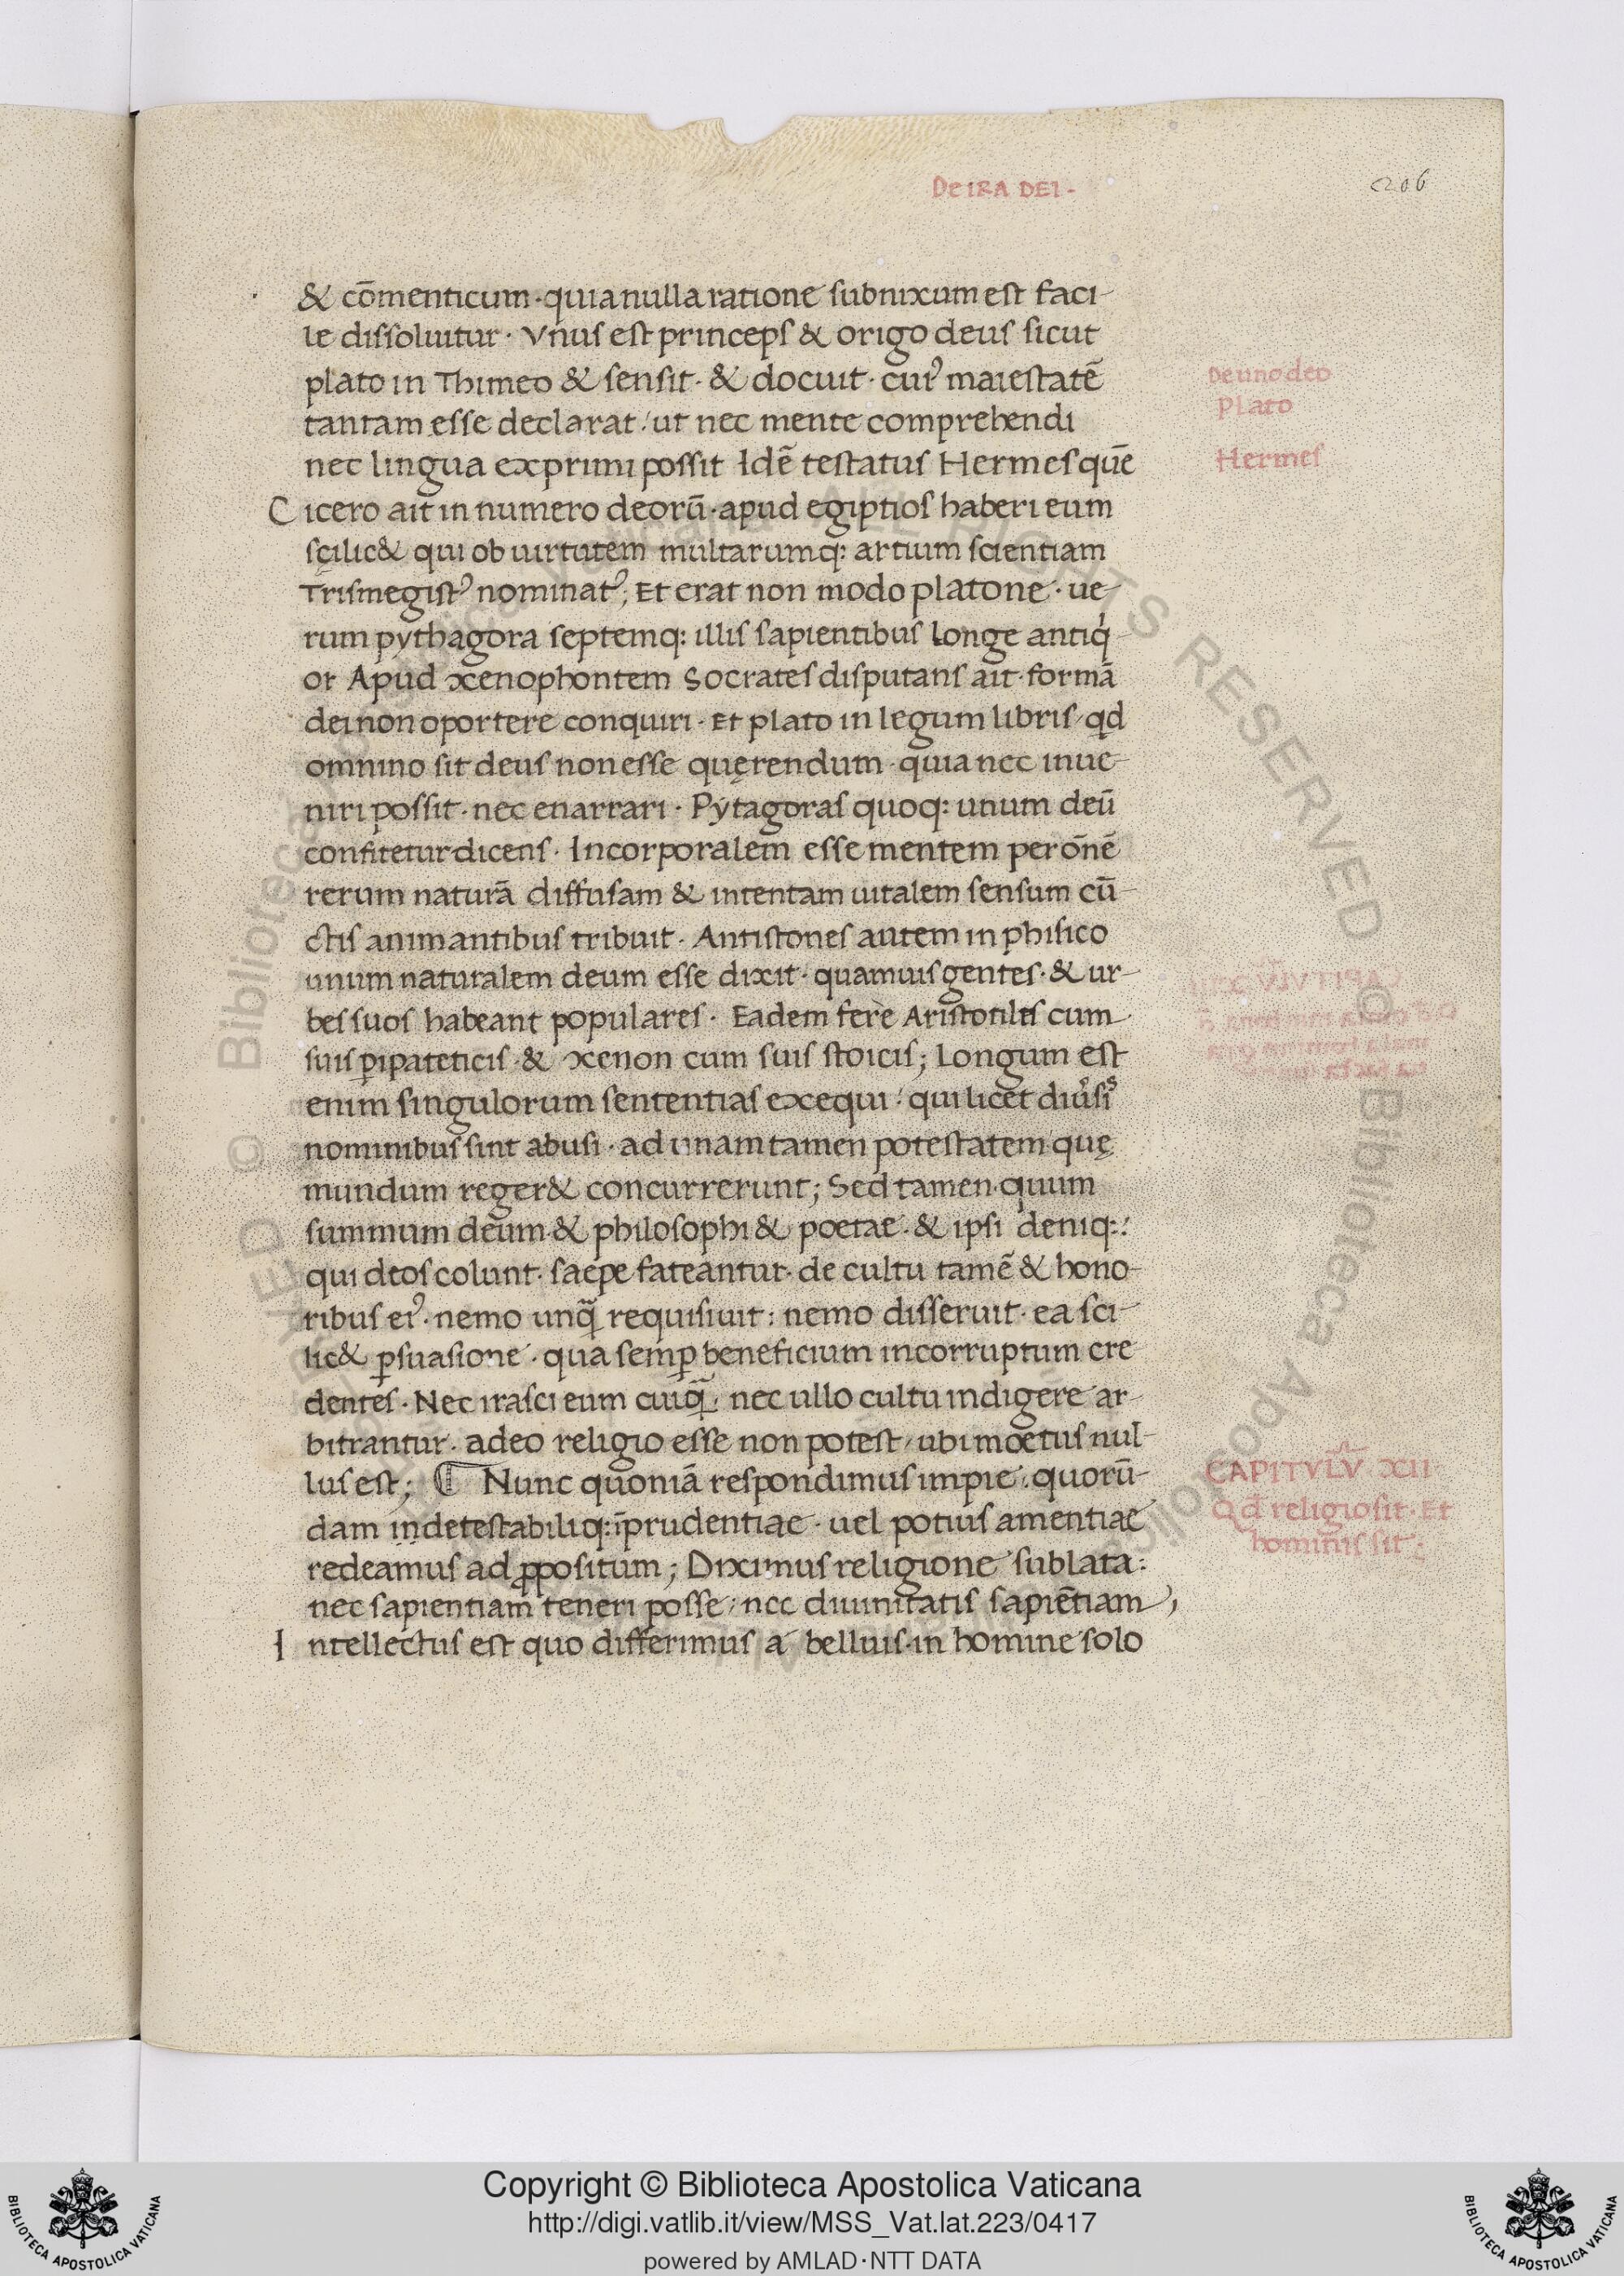 De IRA DEI -
206
& cōmenticum · quia nulla ratione subnixum est faci-
le dissoluitur · Vnus est princeps & origo deus sicut
plato in Thimeo & sensit · & docuit · cuiꝰ maiestatē
tantam esse declarat / ut nec mente comprehendi
nec lingua exprimi possit Idē testatus Hermes quē
Cicero ait in numero deorū · apud egiptios haberi eum
scilic& qui ob uirtutem multarumq: artium scientiam
Trismegistꝰ nominatᷣ ; Et erat non modo platone · ue-
rum pythagora septemq: illis sapientibus longe antiqi-
or Apud xenophontem Socrates disputans ait · formā
dei non oportere conquiri · Et plato in legum libris / qd
omnino sit deus non esse quęrendum · quia nec inue-
niri possit · nec enarrari · Pytagoras quoq: unum deū
confitetur dicens · Incorporalem esse mentem per ōnē
rerum naturā diffusam & intentam uitalem sensum cū-
ctis animantibus tribuit · Antistones autem in phisico
unum naturalem deum esse dixit · quamuis gentes · & ur-
bes suos habeant populares · Eadem fere Aristotiles cum
suis ꝑipateticis · & xenon cum suis stoicis ; Longum est
enim singulorum sententias exequi / qui licet diu͛siˢ
nominibus sint abusi · ad unam tamen potestatem quę
mundum reger& concurrerunt ; Sed tamen quum
summum deum · & philosophi & poetae · & ipsi deniq: /
qui deos colunt · saepe fateantur · de cultu tamē & hono-
ribus eiꝰ · nemo unqᷓ requisiuit : nemo disseruit · ea sci-
lic& ꝑsuasione · qua semꝑ beneficium incorruptum cre
dentes · Nec irasci eum cuiqᷓ · nec ullo cultu indigere ar-
bitrantur · adeo religio esse non potest / ubi moetus nul-
lus est ; ¶ Nunc quoniā respondimus impie · quorū-
dam indetestabiliq: īprudentiae · uel potius amentiae
redeamus ad ꝓpositum ; Diximus religione sublata :
nec sapientiam teneri posse / nec diuinitatis sapientiam ;
Intellectus est quo differimus a belluis · in homine solo
De uno deo
Plato
Hermes
CAPITVLV̄ XII
Qd religio sit · Et
hominis sit ·
Copyright © Biblioteca Apostolica Vaticana
http://digi.vatlib.it/view/MSS_Vat.lat.223/0417
powered by AMLAD·NTT DATA
BIBLIOTECA APOSTOLICA VATICANA
BIBLIOTECA APOSTOLICA VATICANA